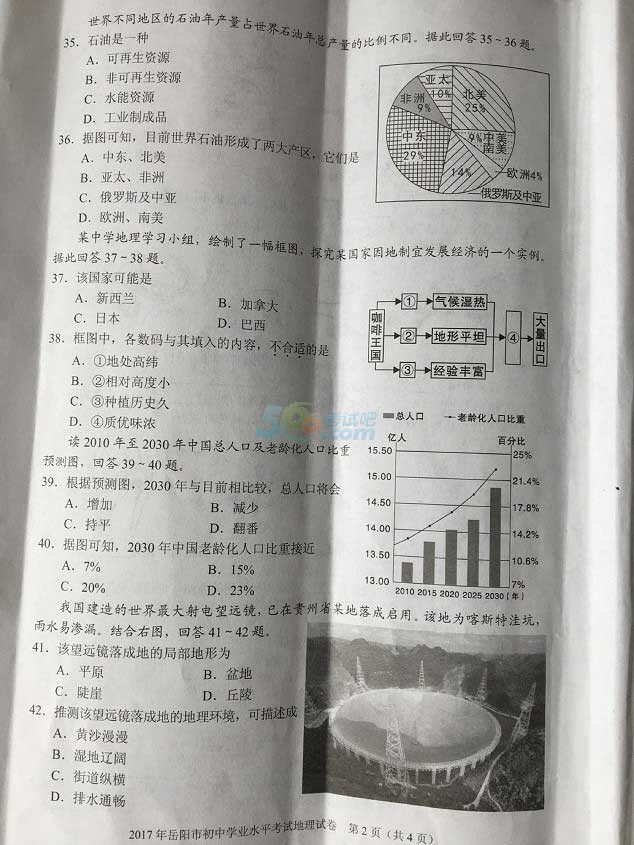 世界不同地区的石油年产量占世界石油年总产量的比例不同。据此回答35~36题。
35. 石油是一种
A. 可再生资源
B. 非可再生资源
C. 水能资源
D. 工业制成品
亚太
10%
北美
25%
非洲
9%
中东
29%
9%
中美
南美
欧洲4%
14%
俄罗斯及中亚
36. 据图可知，目前世界石油形成了两大产区，它们是
A. 中东、北美
B. 亚太、非洲
C. 俄罗斯及中亚
D. 欧洲、南美
某中学地理学习小组，绘制了一幅框图，探究某国家因地制宜发展经济的一个实例。
据此回答37~38题。
37. 该国家可能是
A. 新西兰 B. 加拿大
C. 日本 D. 巴西
38. 框图中，各数码与其填入的内容，不合适的是
A. ①地处高纬
B. ②相对高度小
C. ③种植历史久
D. ④质优味浓
咖啡王国
① 气候湿热
② 地形平坦
③ 经验丰富
④
大量出口
考试吧
.com
读2010年至2030年中国总人口及老龄化人口比重
预测图，回答39~40题。
39. 根据预测图，2030年与目前相比较，总人口将会
A. 增加 B. 减少
C. 持平 D. 翻番
40. 据图可知，2030年中国老龄化人口比重接近
A. 7% B. 15%
C. 20% D. 23%
总人口 老龄化人口比重
亿人 百分比
15.50 25%
15.00 21.4%
14.50 17.8%
14.00 14.2%
13.50 10.6%
13.00 7%
2010 2015 2020 2025 2030(年)
我国建造的世界最大射电望远镜，已在贵州省某地落成启用。该地为喀斯特洼坑，
雨水易渗漏。结合右图，回答41~42题。
41. 该望远镜落成地的局部地形为
A. 平原 B. 盆地
C. 陡崖 D. 丘陵
42. 推测该望远镜落成地的地理环境，可描述成
A. 黄沙漫漫
B. 湿地辽阔
C. 街道纵横
D. 排水通畅
2017年岳阳市初中学业水平考试地理试卷 第2页（共4页）